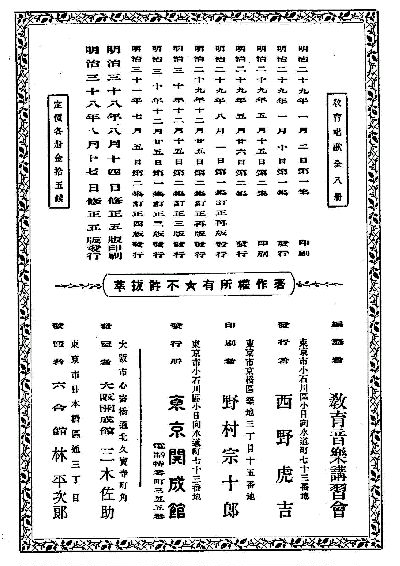 教育唱歌全八册
明治二十九年一月 日第一集 印刷
明治二十九年一月十日第一集 發行
明治二十九年五月十五日第二集 印刷
明治二十九年五月廿六日第二集 發行
明治二十九年八月一日第一集訂正再版發行
明治二十九年十二月十五日第二集訂正再版發行
明治三十年十二月廿五日第一集訂正三版發行
明治三十一年七月五日第二集訂正四版發行
明治三十八年八月十四日修正五版印刷
明治三十八年八月十七日修正五版發行
定價各册金拾五錢
著作權所有★不許拔萃
編纂者 教育音樂講習會
東京市小石川區小日向水道町七十三番地
發行者 西野虎吉
東京市京橋區築地三丁目十五番地
印刷者 野村宗十郎
東京市小石川區小日向水道町七十三番地
發行所 東京開成館
電話特番町三五五番
大阪市心齋橋通北久寶寺町角
發賣者 大阪開成館 三木佐助
東京市日本橋區通三丁目
發賣者 六合館 林平次郎